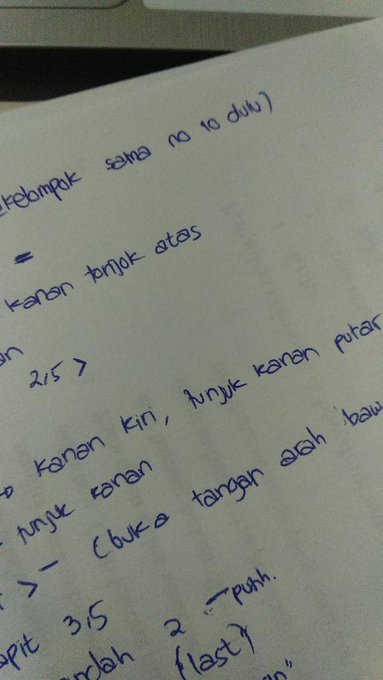 kelompok sama no 10 dulu)
=
kanan tonjok atas
an
2,5 >
kanan kiri, tunjuk kanan putar
tunjuk kanan
> - (buka tangan arah baw
apit 3,5
ndah 2 - putih.
(last)